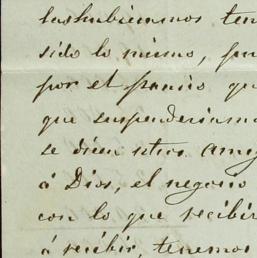 las hubieramos ten
sido lo mismo, pu
por el panico qu
que suspenderiamo
se dien otros amig
á Dios, el negocio
con lo que recibir
á recibir, tenemos